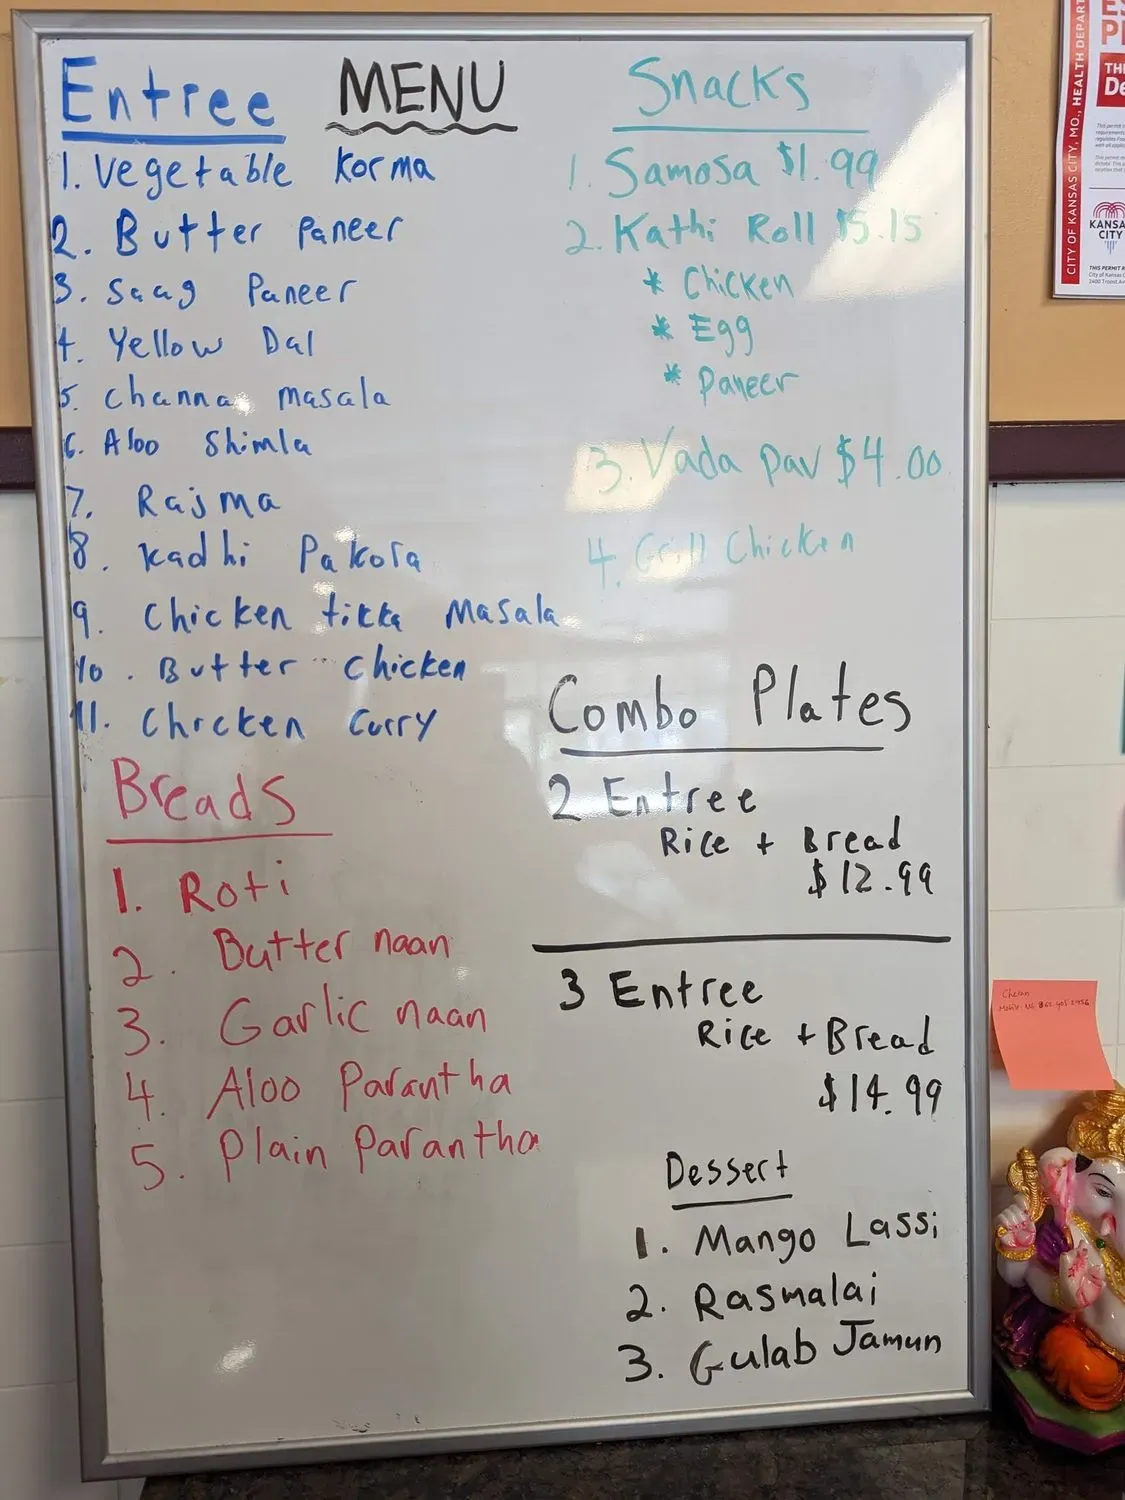 MENU
Entree
1. Vegetable Korma
2. Butter Paneer
3. Saag Paneer
4. Yellow Dal
5. Channa Masala
6. Aloo Shimla
7. Rajma
8. Kadhi Pakora
9. Chicken tikka Masala
10. Butter Chicken
11. Chicken Curry
Breads
1. Roti
2. Butter naan
3. Garlic naan
4. Aloo Parantha
5. Plain Parantha
Snacks
1. Samosa $1.99
2. Kathi Roll $5.15
* Chicken
* Egg
* Paneer
3. Vada pav $4.00
4. Grill Chicken
Combo Plates
2 Entree
Rice + Bread
$12.99
3 Entree
Rice + Bread
$14.99
Dessert
1. Mango Lassi
2. Rasmalai
3. Gulab Jamun
CITY OF KANSAS CITY, MO., HEALTH DEPART
KANSA
CITY
THIS PERMIT
City of Kansas
Chetan